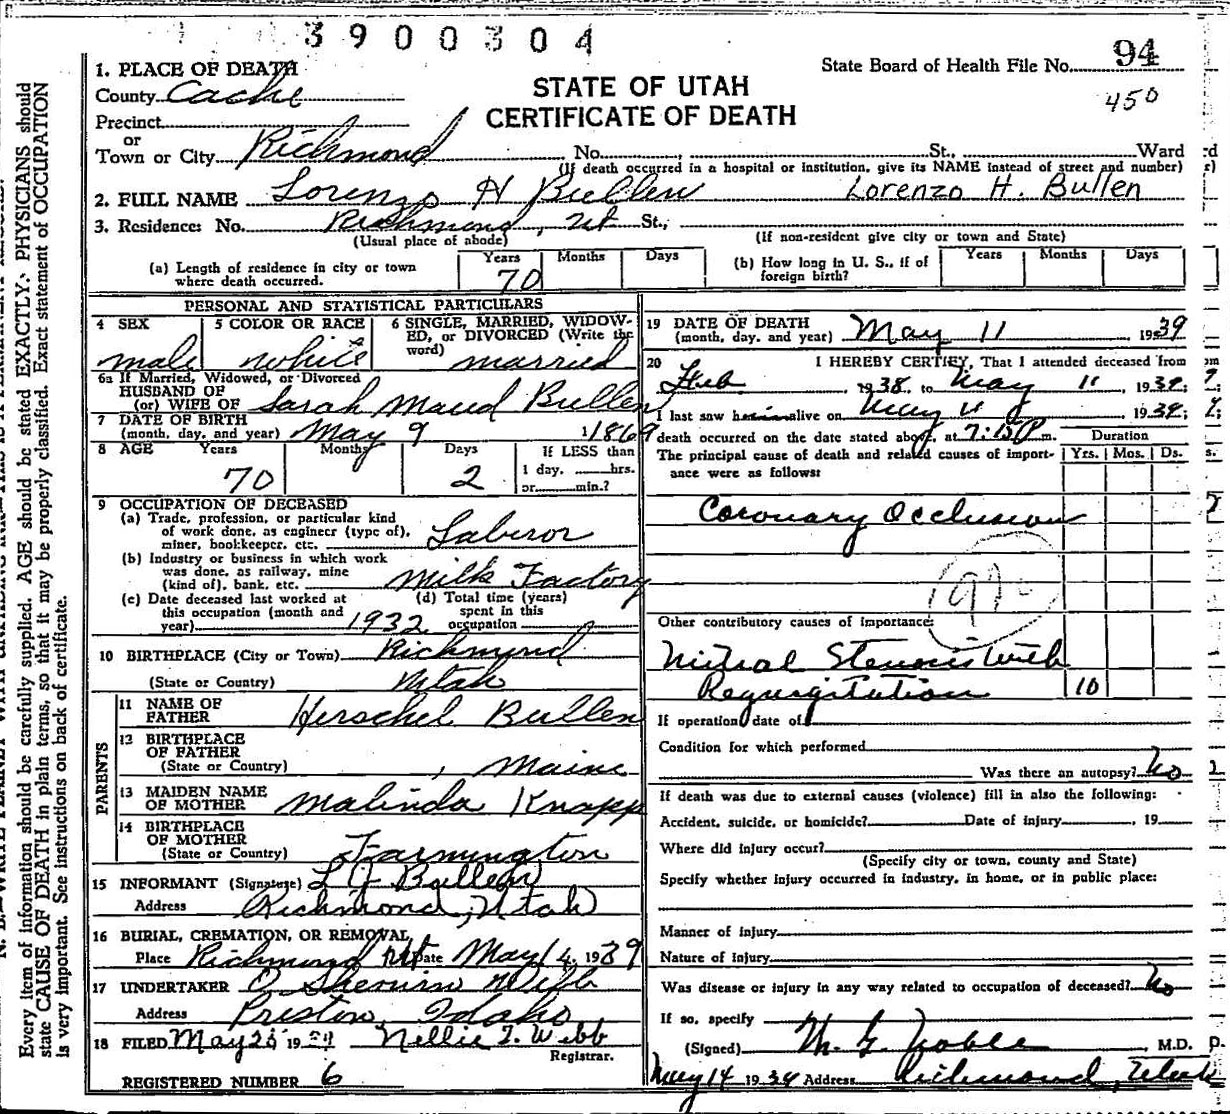 3900304
1. PLACE OF DEATH
County Cache
Precinct
or
Town or City Richmond No. , St., Ward
(If death occurred in a hospital or institution, give its NAME instead of street and number)
STATE OF UTAH
CERTIFICATE OF DEATH
State Board of Health File No. 94
450
2. FULL NAME Lorenzo H Bullen Lorenzo H. Bullen
3. Residence: No. Richmond, Ut St.,
(Usual place of abode) (If non-resident give city or town and State)
(a) Length of residence in city or town where death occurred. Years 70 Months Days
(b) How long in U. S., if of foreign birth? Years Months Days
PERSONAL AND STATISTICAL PARTICULARS
4 SEX male
5 COLOR OR RACE white
6 SINGLE, MARRIED, WIDOW-
ED, or DIVORCED (Write the
word) married
6a If Married, Widowed, or Divorced
HUSBAND OF
(or) WIFE OF Sarah Maud Bullen
7 DATE OF BIRTH
(month, day, and year) May 9 1869
8 AGE Years 70 Months Days 2
If LESS than
1 day, hrs.
or min.?
9 OCCUPATION OF DECEASED
(a) Trade, profession, or particular kind
of work done, as engineer (type of),
miner, bookkeeper, etc. Laberor
(b) Industry or business in which work
was done, as railway, mine
(kind of), bank, etc. Milk Factory
(c) Date deceased last worked at
this occupation (month and
year) 1932
(d) Total time (years)
spent in this
occupation
10 BIRTHPLACE (City or Town) Richmond
(State or Country) Utah
PARENTS
11 NAME OF
FATHER Herschel Bullen
12 BIRTHPLACE
OF FATHER
(State or Country) , Maine
13 MAIDEN NAME
OF MOTHER Malinda Knapp
14 BIRTHPLACE
OF MOTHER
(State or Country) Farmington
15 INFORMANT (Signature) L J Bullen
Address Richmond, Utah
16 BURIAL, CREMATION, OR REMOVAL
Place Richmond Ut Date May 14, 1939
17 UNDERTAKER C Sherwin Webb
Address Preston, Idaho
18 FILED May 25 1939 Nellie T. Webb
Registrar.
REGISTERED NUMBER 6
19 DATE OF DEATH
(month, day, and year) May 11 , 1939
20 I HEREBY CERTIFY, That I attended deceased from
Feb , 1938, to May 11, 1939;
I last saw him alive on May 11, 1939;
death occurred on the date stated above, at 7:15 P m.
The principal cause of death and related causes of import-
ance were as follows:
Duration
Yrs. Mos. Ds.
Coronary Occlusion
Other contributory causes of importance:
Mitral Stenosis with
Regurgitation 10
If operation, date of
Condition for which performed
Was there an autopsy? No
If death was due to external causes (violence) fill in also the following:
Accident, suicide, or homicide? Date of injury , 19
Where did injury occur?
(Specify city or town, county and State)
Specify whether injury occurred in industry, in home, or in public place:
Manner of injury
Nature of injury
Was disease or injury in any way related to occupation of deceased? No
If so, specify
(Signed) M. G. Noble , M.D.
May 14 1939 Address Richmond, Utah
Every item of information should be carefully supplied. AGE should be stated EXACTLY. PHYSICIANS should
state CAUSE OF DEATH in plain terms, so that it may be properly classified. Exact statement of OCCUPATION
is very important. See instructions on back of certificate.